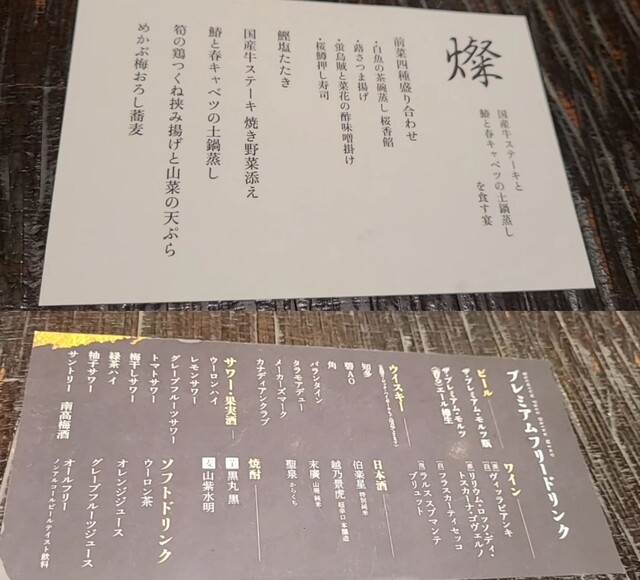 燦
国産牛ステーキと
鰆と春キャベツの土鍋蒸し
を食す宴
前菜四種盛り合わせ
・白魚の茶碗蒸し 桜香餡
・蕗さつま揚げ
・蛍烏賊と菜花の酢味噌掛け
・桜鱒押し寿司
鰹塩たたき
国産牛ステーキ 焼き野菜添え
鰆と春キャベツの土鍋蒸し
筍の鶏つくね挟み揚げと山菜の天ぷら
めかぶ梅おろし蕎麦
プレミアムフリードリンク
ビール
ザ・プレミアム・モルツ
ウイスキー
知多
碧Ao
角
バランタイン
タラモアデュー
メーカーズマーク
カナディアンクラブ
サワー・果実酒
ウーロンハイ
レモンサワー
グレープフルーツサワー
トマトサワー
梅干しサワー
緑茶ハイ
柚子サワー
サントリー 南高梅酒
ワイン
ヴィッラビアンキ
トスカーナ・ゴヴェルノ
フラスカーティセッコ
ラルス スプマンテ
ブリュット
日本酒
伯楽星 特別純米
越乃景虎 超辛口 本醸造
末廣 山廃 純米
聖泉 からくち
焼酎
黒丸 黒
山紫水明
ソフトドリンク
ウーロン茶
オレンジジュース
グレープフルーツジュース
オールフリー
ノンアルコールビールテイスト飲料